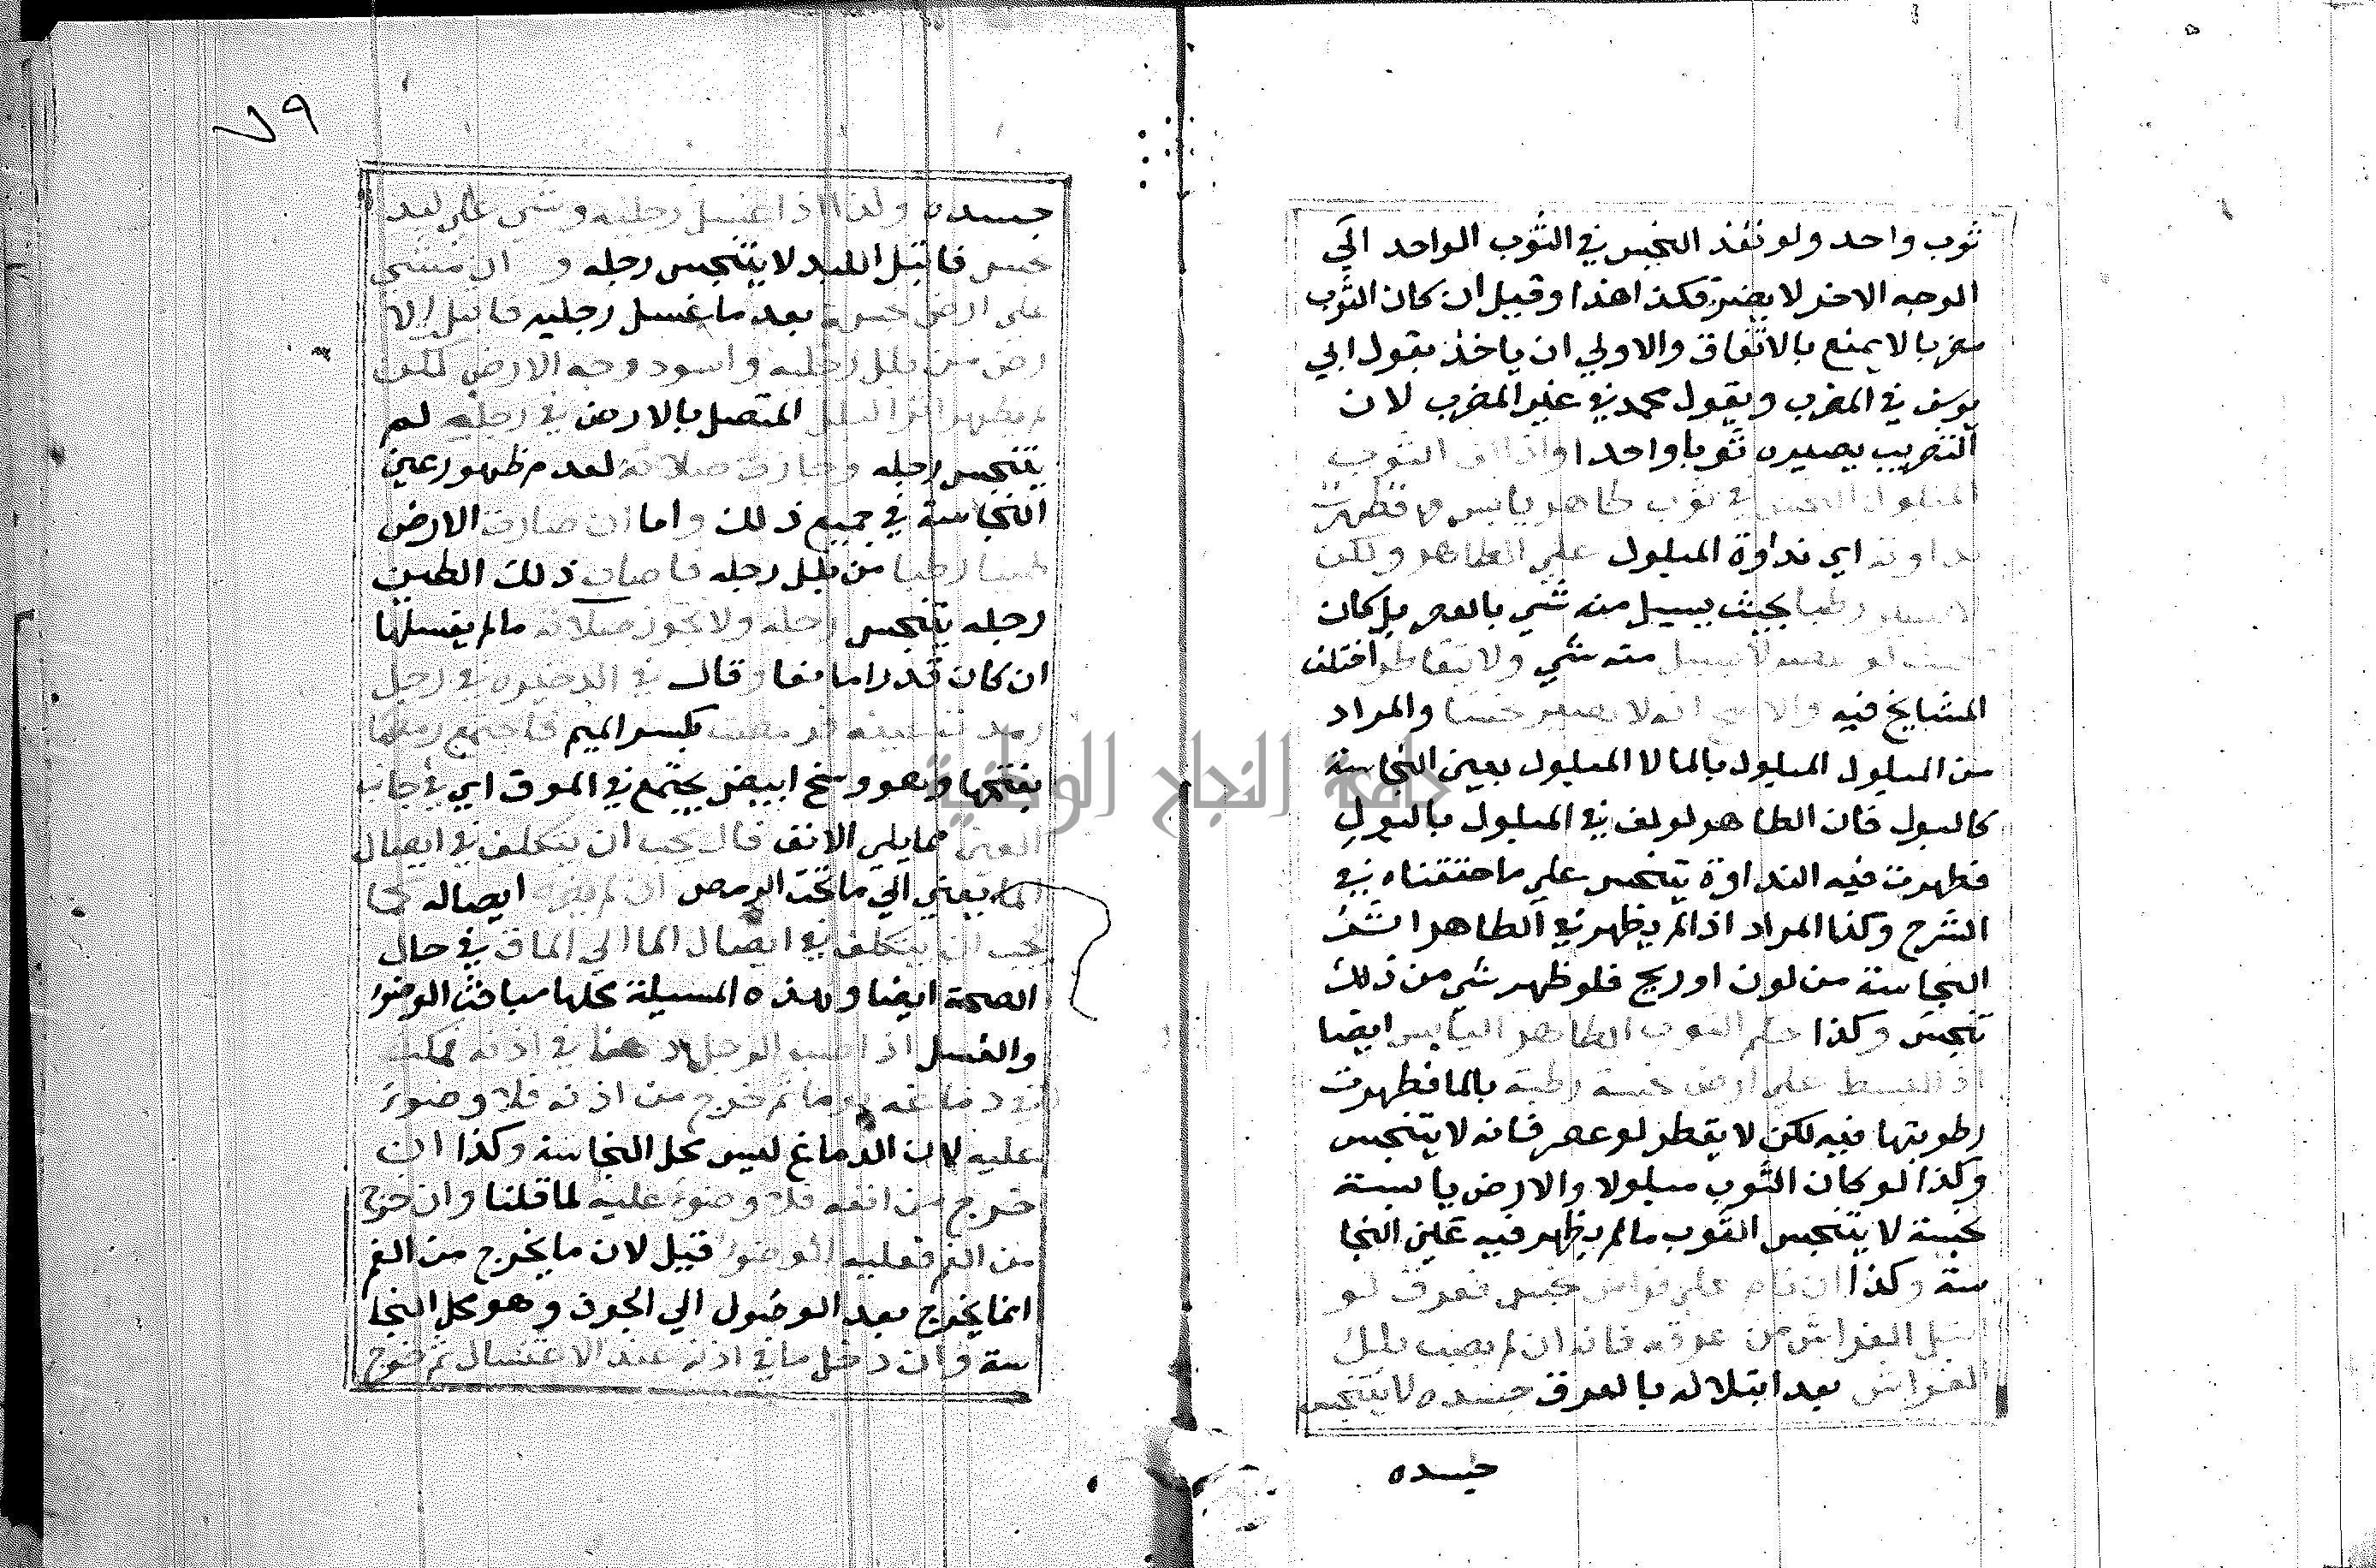 ثوب واحد ولو نفذ النجس في الثوب الواحد الي
الوجه الاخر لا يضر فكذا هذا وقيل ان كان الثوب
مضربا لا يمنع بالاتفاق والاولي ان ياخذ بقول ابي
يوسف في المضرب وبقول محمد في غير المضرب لان
التضريب يصيره ثوبا واحدا واذا لف الثوب
المبلول النجس في ثوب طاهر يابس فظهرت
نداوته اي نداوة المبلول علي الطاهر ولكن
رطبا بحيث يسيل منه شي بالعصر بل كان
بحيث لو عصر لا يسيل منه شي ولا يتقاطر اختلف
المشايخ فيه والاصح انه لا يصير نجسا والمراد
من المبلول المبلول بالما لا المبلول بعين النجاسة
كالبول فان الطاهر لو لف في المبلول بالبول
فظهرت فيه النداوة يتنجس علي ما حققناه في
الشرح وكذا المراد اذا لم يظهر في الطاهر اثر
النجاسة من لون او ريح فلو ظهر شي من ذلك
تنجس وكذا حكم الثوب الطاهر اليابس ايضا
اذا انبسط علي ارض نجسة رطبة بالما فظهرت
رطوبتها فيه لكن لا يقطر لو عصر فانه لا يتنجس
وكذا لو كان الثوب مبلولا والارض يابسة
نجسة لا يتنجس الثوب ما لم يظهر فيه عين النجا
سة وكذا ان نام علي فراش نجس فعرق
ابتل الفراش من عرقه فانه ان لم يصب بلل
الفراش بعد ابتلاله بالعرق جسده لا يتنجس
جسده
٧٩
جسده وكذا اذا غسل رجليه ومشي علي لبد
نجس فابتل اللبد لا يتنجس رجله و ان مشي
علي ارض نجسة بعد ما غسل رجليه فابتل الا
رض من بلل رجليه واسود وجه الارض لكن
لم يظهر اثر البلل المتصل بالارض في رجليه لم
يتنجس رجله وجازت صلاته لعدم ظهور عين
النجاسة في جميع ذلك واما ان صارت الارض
طينا رطبا من بلل رجله فاصاب ذلك الطين
رجله يتنجس رجله ولا تجوز صلاته ما لم يغسلها
ان كان قدرا مانعا وقال في الذخيرة في رجل
رمدت عينه فرمصت بكسر الميم فاجتمع رمصها
بفتحها وهو وسخ ابيض يجتمع في الموق اي في جانب
العين مما يلي الانف قال يجب ان يتكلف في ايصال
الما يعني الي ما تحت الرمص ان لم يضره ايصاله كما
يجب ان يتكلف في ايصال الما الي الماق في حال
الصحة ايضا وهذه المسيلة محلها مباحث الوضوء
والغسل اذا صب الرجل دهنا في اذنه فمكث
في دماغه يوما ثم خرج من اذنه فلا وضوء
عليه لان الدماغ ليس محل النجاسة وكذا ان
خرج من انفه فلا وضوء عليه لما قلنا وان خرج
من الفم فعليه الوضوء قيل لان ما يخرج من الفم
انما يخرج بعد الوصول الي الجوف وهو محل النجا
سة وان دخل ما في اذنه عند الاغتسال ثم خرج
جامعة النجاح الوطنية